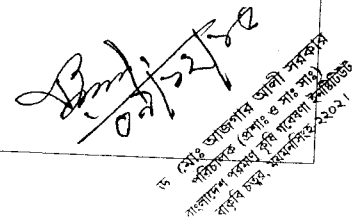 ড. মোঃ আজগার আলী সরকার
পরিচালক (প্রশাঃ ও সাঃ সাঃ)
বাংলাদেশ পরমাণু কৃষি গবেষণা ইনস্টিটিউট
বাকৃবি চত্বর, ময়মনসিংহ-২২০২।